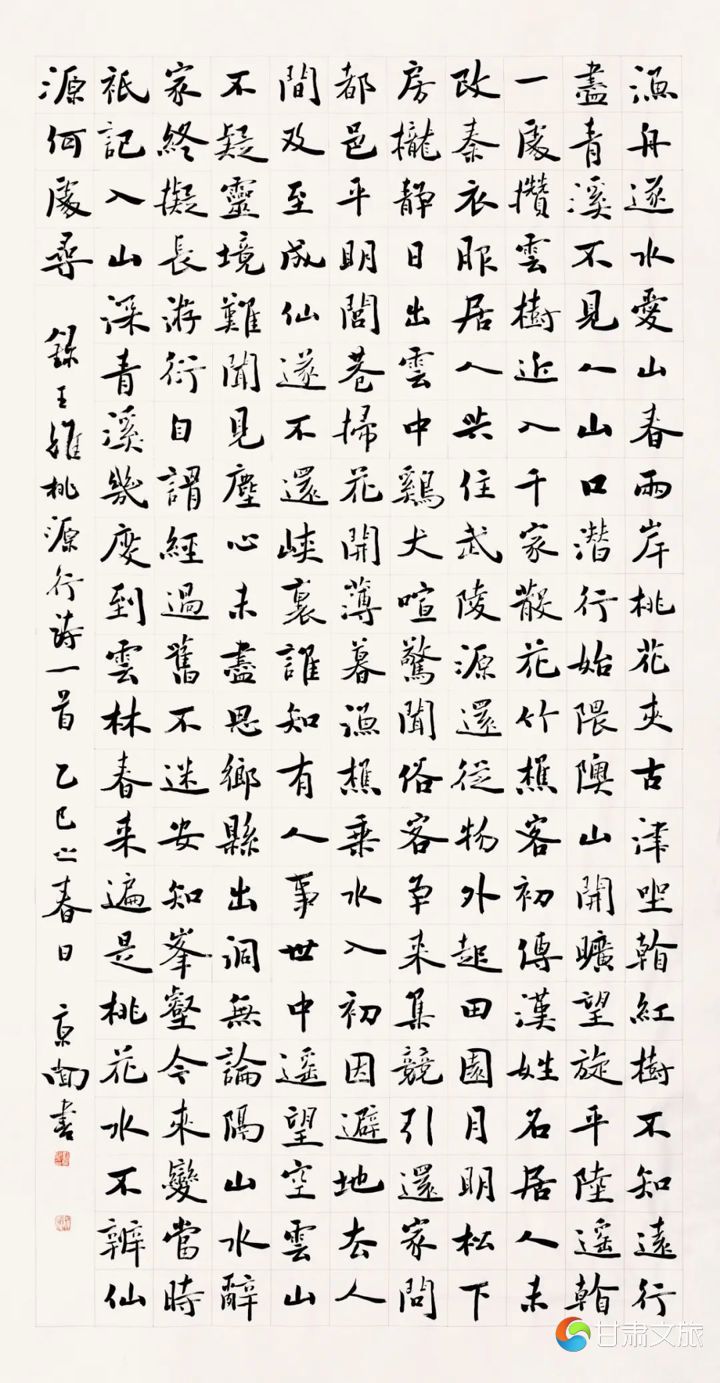 漁舟遂水愛山春兩岸桃花夾古津坐看紅樹不知遠行
盡青溪不見人山口潛行始隈隩山開曠望旋平陸遙看
一處攢雲樹近入千家散花竹樵客初傳漢姓名居人未
改秦衣服居人共住武陵源還從物外起田園月明松下
房櫳靜日出雲中鷄犬喧驚聞俗客爭來集競引還家問
都邑平明閭巷掃花開薄暮漁樵乘水入初因避地去人
間及至成仙遂不還峽裏誰知有人事世中遙望空雲山
不疑靈境難聞見塵心未盡思鄉縣出洞無論隔山水辭
家終擬長游衍自謂經過舊不迷安知峯壑今來變當時
祇記入山深青溪幾度到雲林春来遍是桃花水不辨仙
源何處尋 錄王維桃源行詩一首 乙巳之春日 書
甘肃文旅